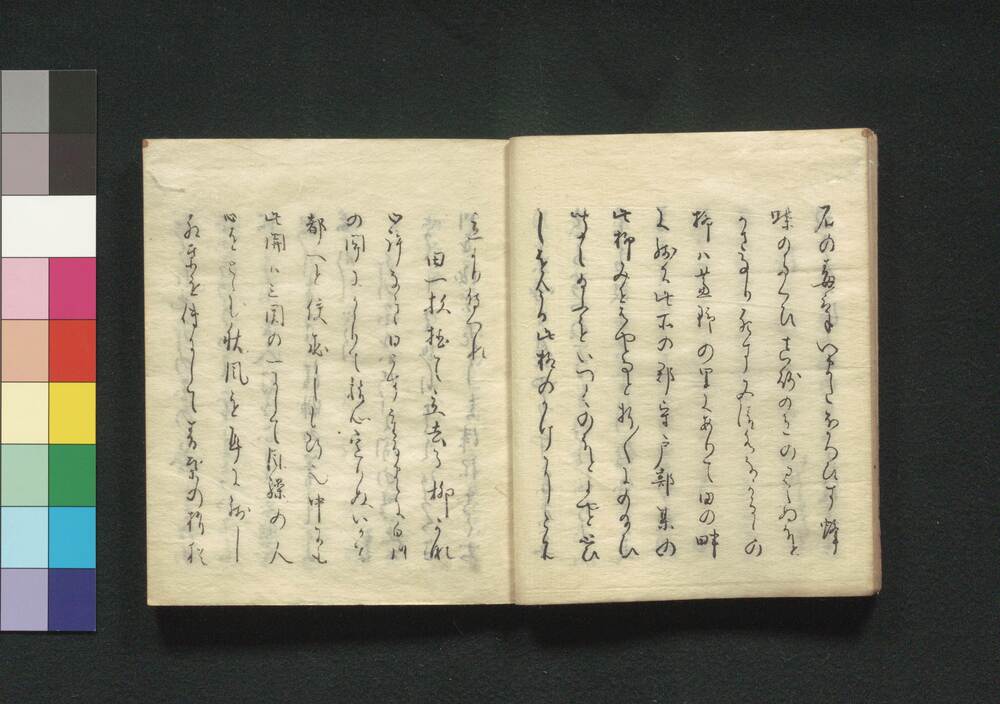 石の毒気いまたほろひす蜂
蝶のたくひ真砂のいろの見えぬほと
かさなり死す又清水なかるゝの
柳ハ蘆野の里にありて田の畔
に残る此所の郡守戸部某の
此柳みせはやなと折〱にの給ひ
聞え給ふをいつくのほとにやと思ひ
しをけふ此柳のかけにこそ
立より侍つれ
田一枚植て立去る柳かな
心許なき日かす重るまゝに白川
の関にかゝりて旅心定りぬいかて
都へと便求しも断也中にも
此関ハ三関の一にして風騒の人
心をとゝむ秋風を耳に残し
紅葉を俤にして青葉の梢猶